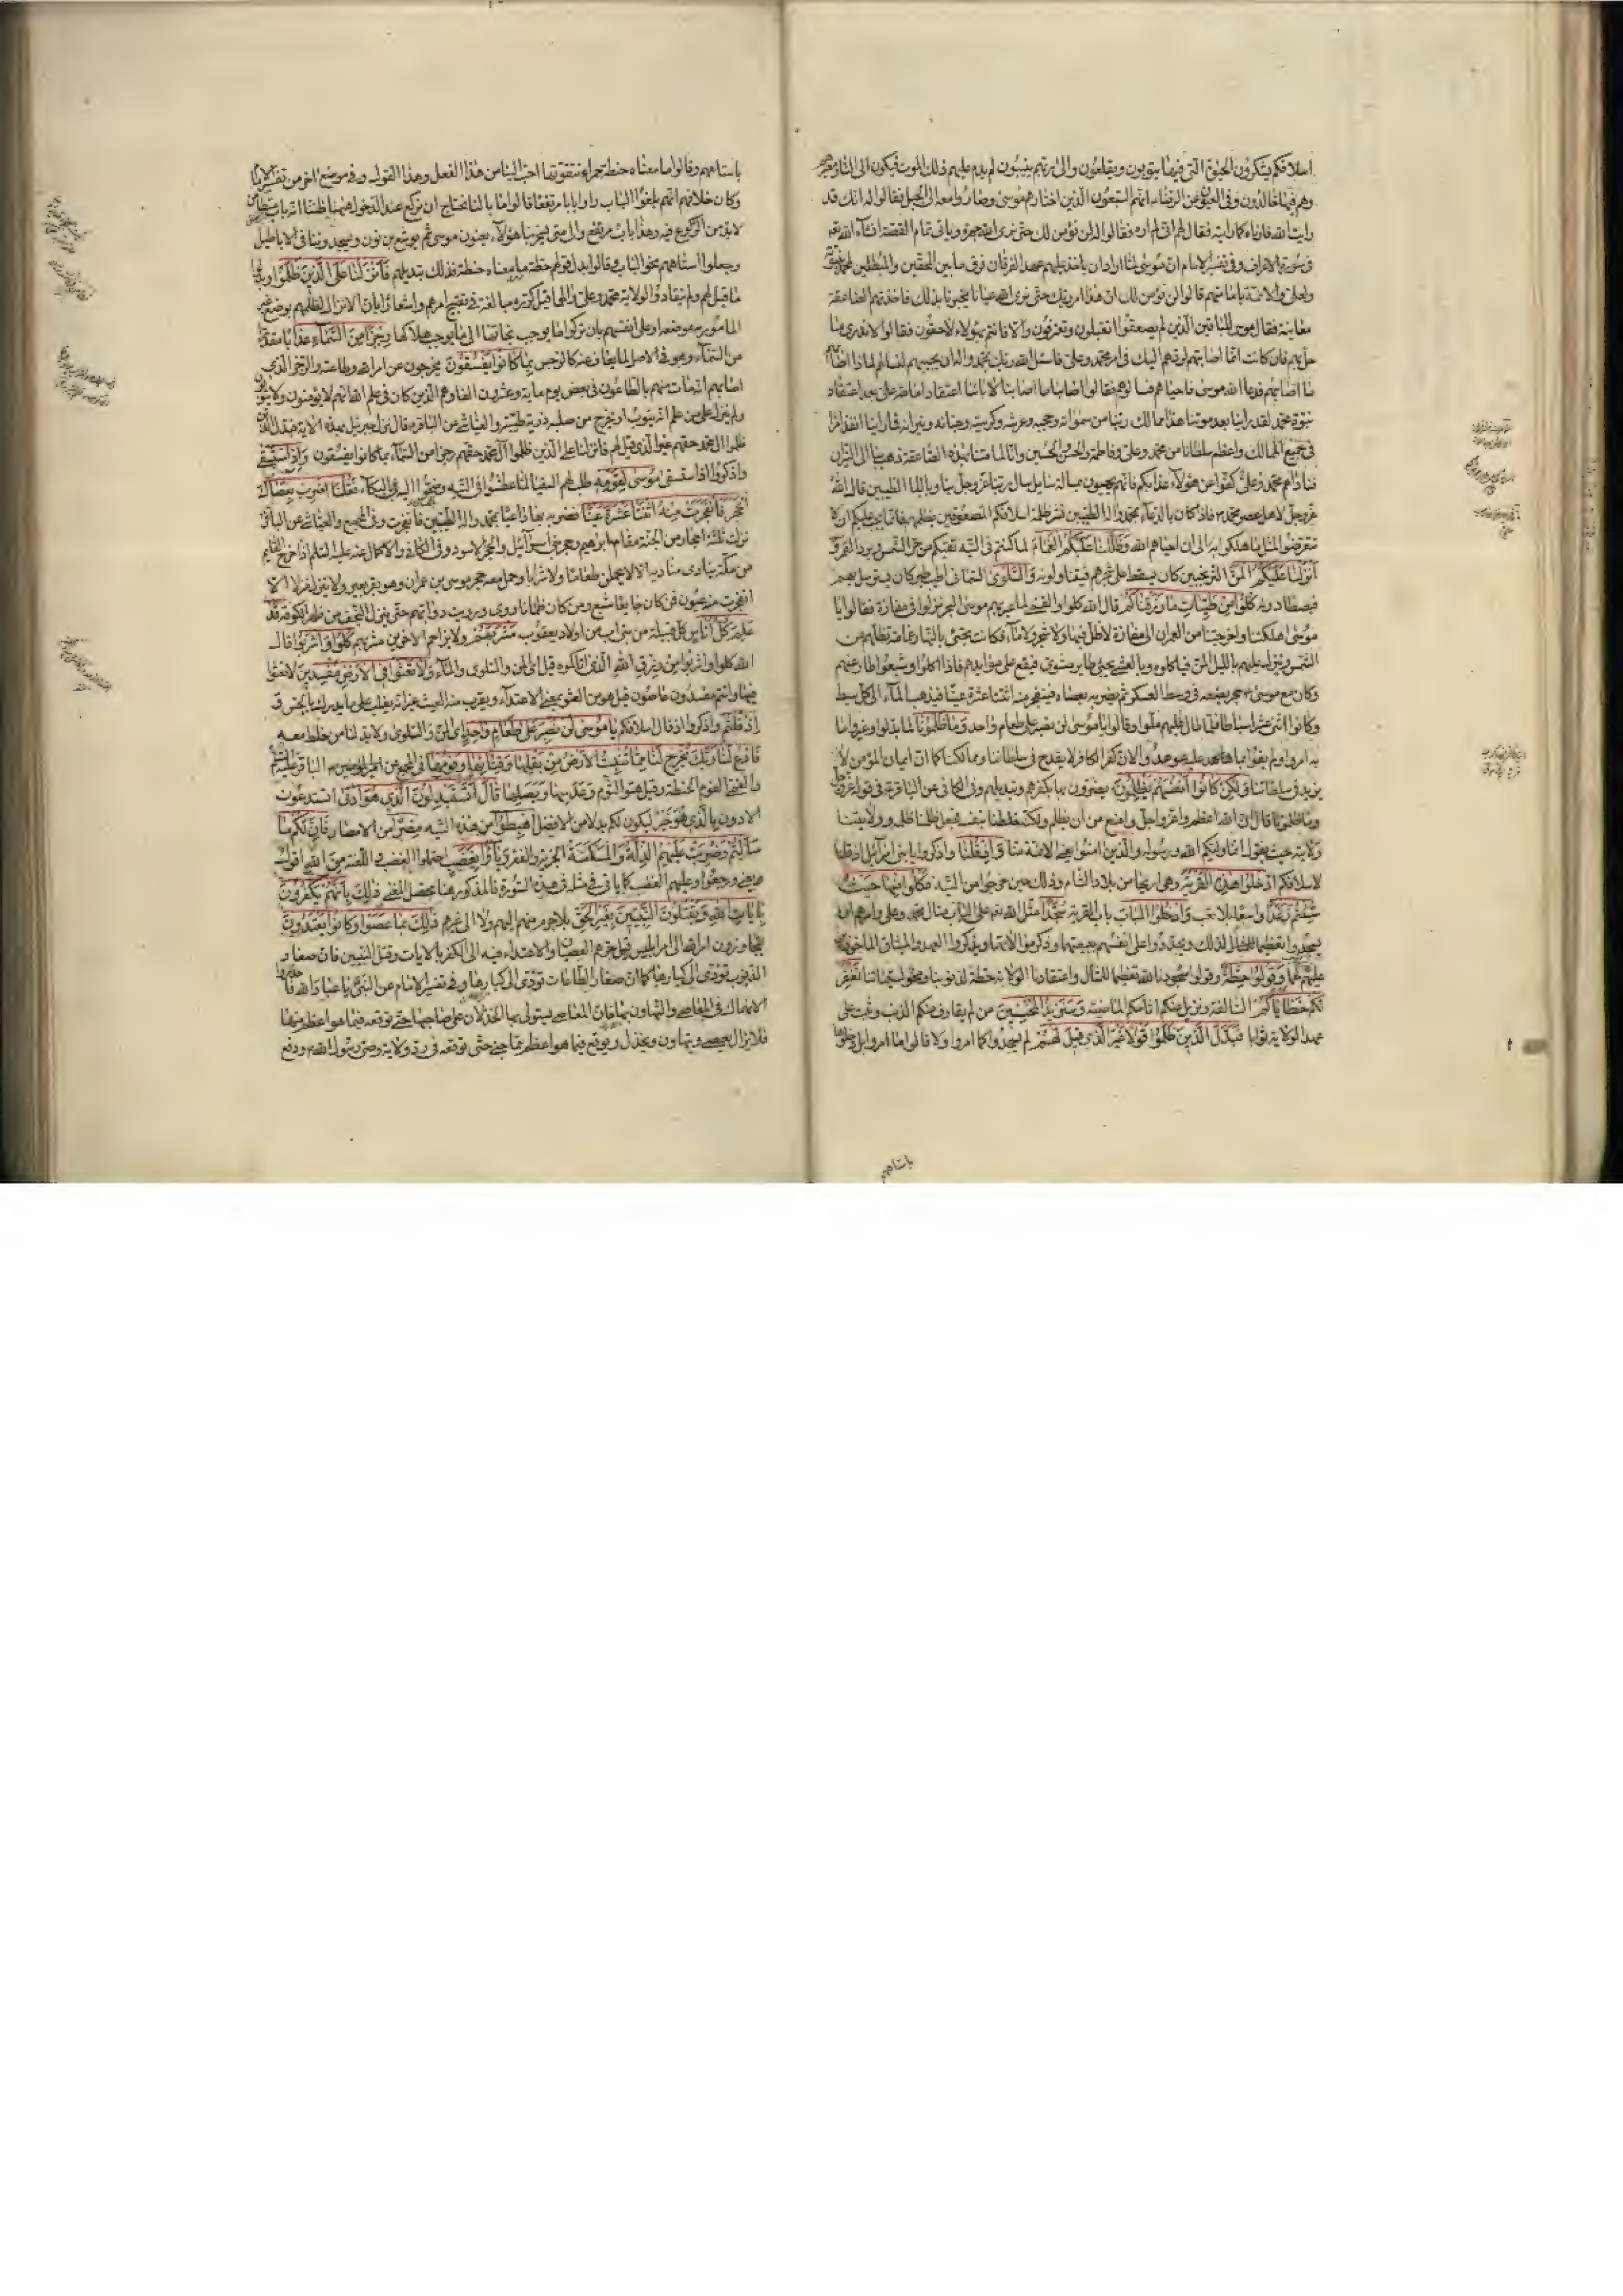 اسلافكم يشكرون الحيوة التي فيها يتوبون ويقلعون والى ربهم ينيبون لم يدم عليهم ذلك الموت فيكون الى النار مصيرهم
وهم فيها خالدون وفي العيون عن الرضا انهم السبعون الذين اختارهم موسى وصاروا معه الى الجبل فقالوا له انك قد
رايت الله فارناه كما رايته فقال لهم اني لم اره فقالوا لن نؤمن لك حتى نرى الله جهرة وياتي تمام القصة انشاء الله تعالى
في سورة الاعراف وفي تفسير الامام ان موسى لما اراد ان ياخذ عليهم عهد الفرقان فرق ما بين المحقين والمبطلين لمحمد بنبوته
ولعلي والائمة بامامتهم قالوا لن نؤمن لك ان هذا امر ربك حتى نرى الله عيانا يخبرنا بذلك فاخذتهم الصاعقة
معاينة فقال موسى للباقين الذين لم يصعقوا اتقبلون وتعترفون والا فانتم بهؤلاء لاحقون فقالوا لا ندري ما
حل بهم فان كانت انما اصابتهم لردهم عليك في امر محمد وعلي فاسئل الله ربك بمحمد واله ان يحييهم لنسالهم لماذا اصابهم
ما اصابهم فدعا الله موسى فاحياهم فسالوهم فقالوا اصابنا ما اصابنا لابائنا اعتقاد امامة علي بعد اعتقاد
نبوة محمد لقد راينا بعد موتنا هذا ممالك ربنا من سمواته وحجبه وعرشه وكرسيه وجنانه ونيرانه فما راينا انفذ امرا
في جميع الممالك واعظم سلطانا من محمد وعلي وفاطمة والحسن والحسين وانا لما متنا بهذه الصاعقة ذهب بنا الى النيران
فناداهم محمد وعلي كفوا عن هؤلاء عذابكم فانهم يحيون بمسالة سايل سال ربنا عز وجل بنا وبالنا الطيبين قال الله
عز وجل لاهل عصر محمد فاذا كان بالدعاء بمحمد واله الطيبين نشر ظلمة اسلافكم المصعوقين بظلمهم فانما يجب عليكم ان لا
تتعرضوا لمثل ما هلكوا به الى ان احياهم الله وظللنا عليكم الغمام لما كنتم في التيه تقيكم من حر الشمس وبرد القمر و
انزلنا عليكم المن الترنجبين كان يسقط على شجرهم فيتناولونه والسلوى السماني اطيب طير كان يسترسل لهم
فيصطادونه كلوا من طيبات ما رزقناكم قال الله كلوا والقمي لما عبر بهم موسى البحر نزلوا في مفازة فقالوا يا
موسى اهلكتنا واخرجتنا من العمران الى مفازة لا ظل فيها ولا شجر ولا ماء فكانت تجيئ بالنهار غمامة تظلهم من
الشمس وينزل عليهم بالليل المن فياكلونه وبالعشي يجيئ طاير مشوي فيقع على موائدهم فاذا اكلوا وشبعوا طار عنهم
وكان مع موسى حجر يضعه في وسط العسكر ثم يضربه بعصاه فينفجر منه اثنتا عشرة عينا فيذهب الماء الى كل سبط
وكانوا اثنى عشر سبطا فلما طال عليهم ملوا وقالوا يا موسى لن نصبر على طعام واحد وما ظلمونا لما بدلوا وغيروا ما
به امروا ولم يفوا بما عليه عوهدوا لان كفر الكافر لا يقدح في سلطاننا وممالكنا كما ان ايمان المؤمن لا
يزيد في سلطاننا ولكن كانوا انفسهم يظلمون يضرون بها بكفرهم وتبديلهم وفي الكافي عن الباقر في قوله عز وجل
وما ظلمونا قال ان الله اعظم واعز واجل وامنع من ان يظلم ولكنه خلطنا بنفسه فجعل ظلمنا ظلمه وولايتنا
ولايته حيث يقول انما وليكم الله ورسوله والذين امنوا يعني الائمة منا واذ قلنا واذكروا يا بني اسرائيل اذ قلنا
لاسلافكم ادخلوا هذه القرية وهي اريحا من بلاد الشام وذلك حين خرجوا من التيه فكلوا منها حيث
شئتم رغدا واسعا بلا تعب وادخلوا الباب باب القرية سجدا مثل الله تعالى على الباب مثال محمد وعلي وامرهم ان
يسجدوا تعظيما لذلك المثال ويجددوا على انفسهم بيعتهما وذكر موالاتهما ويذكروا العهد والميثاق الماخوذين
عليهم لهما وقولوا حطة وقولوا سجودنا لله تعظيما للمثال واعتقادنا الولاية حطة لذنوبنا ومحو لسيئاتنا نغفر
لكم خطاياكم السالفة ونزيل عنكم اثامكم الماضية وسنزيد المحسنين من لم يقارف منكم الذنب وثبت على
عهد الولاية ثوابا فبدل الذين ظلموا قولا غير الذي قيل لهم لم يسجدوا كما امروا ولا قالوا ما امروا بل دخلوها
باستاههم
باستاههم وقالوا ما معناه حنطة حمراء نتقوتها احب الينا من هذا الفعل وهذا القول وفي موضع اخر من تفسير الامام
وكان خلافهم انهم لما بلغوا الباب راوا بابا مرتفعا قالوا ما بالنا نحتاج ان نركع عند الدخول هيهنا ظننا انه باب متطامن
لا بد من الركوع فيه وهذا باب مرتفع والى متى يسخر بنا هؤلاء يعنون موسى ثم يوشع بن نون ويسجدوننا في الاباطيل
وجعلوا استاههم نحو الباب وقالوا بدل قولهم حطة ما معناه حنطة فذلك تبديلهم فانزلنا على الذين ظلموا وبدلوا
ما قيل لهم ولم ينقادوا لولاية محمد وعلي والهما قيل كرره مبالغة في تقبيح امرهم واشعارا بان الانزال لظلمهم بوضع غير
المامور به موضعه او على انفسهم بان تركوا ما يوجب نجاتها الى ما يوجب هلاكها رجزا من السماء عذابا مقدرا
من السماء وهو في الاصل لما يعاف عنه كالرجس بما كانوا يفسقون يخرجون عن امر الله وطاعته والرجز الذي
اصابهم انه مات منهم بالطاعون في بعض يوم ماية وعشرون الفا وهم الذين كان في علم الله انهم لا يؤمنون ولا يتوبون
ولم ينزل على من علم انه يتوب او يخرج من صلبه ذرية طيبة والعياشي عن الباقر قال نزل جبرئيل بهذه الاية فبدل الذين
ظلموا ال محمد حقهم غير الذي قيل لهم فانزلنا على الذين ظلموا ال محمد حقهم رجزا من السماء بما كانوا يفسقون واذ استسقى
واذكروا اذ استسقى موسى لقومه طلب لهم السقيا لما عطشوا في التيه وضجوا اليه بالبكاء فقلنا اضرب بعصاك
الحجر فانفجرت منه اثنتا عشرة عينا فضربه بها داعيا بمحمد واله الطيبين فانفجرت وفي المجمع والعياشي عن الباقر
نزلت ثلثة احجار من الجنة مقام ابراهيم وحجر بني اسرائيل والحجر الاسود وفي الكافي والاكمال عنه عليه السلم اذا خرج القايم
من مكة ينادي مناديه الا لا يحملن طعاما ولا شرابا وحمل معه حجر موسى بن عمران وهو وقر بعير ولا ينزل منزلا الا
انفجرت منه عيون فمن كان جايعا شبع ومن كان ظمانا روى ورويت دوابهم حتى ينزل النجف من ظهر الكوفة قد
علم كل اناس كل قبيلة من بني اب من اولاد يعقوب مشربهم ولا يزاحم الاخرين في مشربهم كلوا واشربوا قال
الله كلوا واشربوا من رزق الله الذي اتاكموه قيل اي المن والسلوى والماء ولا تعثوا في الارض مفسدين لا تعثوا
فيها وانتم مفسدون عاصون قيل هو من العثو بمعنى الاعتداء ويقرب منه العيث غير انه يغلب على ما يدرك بالحس و
اذ قلتم واذكروا اذ قال اسلافكم يا موسى لن نصبر على طعام واحد اي المن والسلوى ولا بد لنا من خلط معه
فادع لنا ربك يخرج لنا مما تنبت الارض من بقلها وقثائها وفومها في المجمع عن امير المؤمنين الباقر عليهما السلم
والقمي الفوم الحنطة وقيل هو الثوم وعدسها وبصلها قال اتستبدلون الذي هو ادنى اتستدعون
الادون بالذي هو خير ليكون لكم بدلا من الافضل اهبطوا من هذه التيه مصرا من الامصار فان لكم ما
سالتم وضربت عليهم الذلة والمسكنة الجزية والفقر وباؤا بغضب احتملوا الغضب واللعنة من الله اقول
يعني ورجعوا وعليهم الغضب كما ياتي في مثله في هذه السورة فالمذكور هنا محصل المعنى ذلك بانهم يكفرون
بايات الله ويقتلون النبيين بغير الحق بلا جرم منهم اليهم ولا الى غيرهم ذلك بما عصوا وكانوا يعتدون
يتجاوزون امر الله الى امر ابليس قيل جرهم العصيان والاعتداء فيه الى الكفر بالايات وقتل النبيين فان صغار
الذنوب تؤدي الى كبارها كما ان صغار الطاعات تؤدي الى كبارها وفي تفسير الامام عن النبي يا عباد الله فاحذروا
الانهماك في المعاصي والتهاون بها فان المعاصي يستولي بها الخذلان على صاحبها حتى توقعه فيما هو اعظم منها
فلا يزال يعصي ويتهاون ويخذل ويوقع فيما هو اعظم مما جنى حتى توقعه في رد ولاية وصي رسول الله ودفع